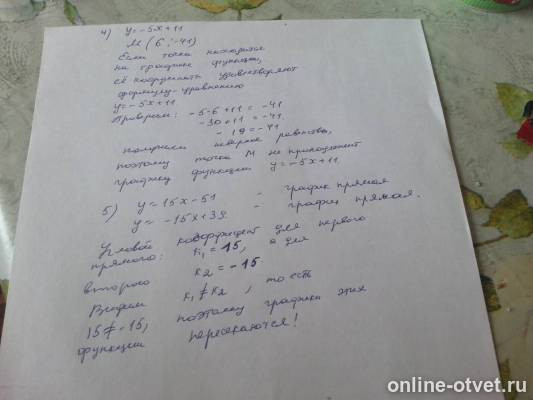 4) y = -5x + 11
M (6; -41)
Если точка находится
на графике функции,
её координаты удовлетворяют
формулу-уравнению
y = -5x + 11
Проверим: -5·6 + 11 = -41
-30 + 11 = -41
-19 = -41
получили неверное равенство,
поэтому точка M не принадлежит
графику функции y = -5x + 11
5) y = 15x - 51 - график прямая
y = -15x + 39 - график прямая.
Угловой коэффициент для первого
прямого: k₁ = 15, а для
второго k₂ = -15.
Видим k₁ ≠ k₂, то есть
15 ≠ -15, поэтому графики этих
функции пересекаются!
online-otvet.ru